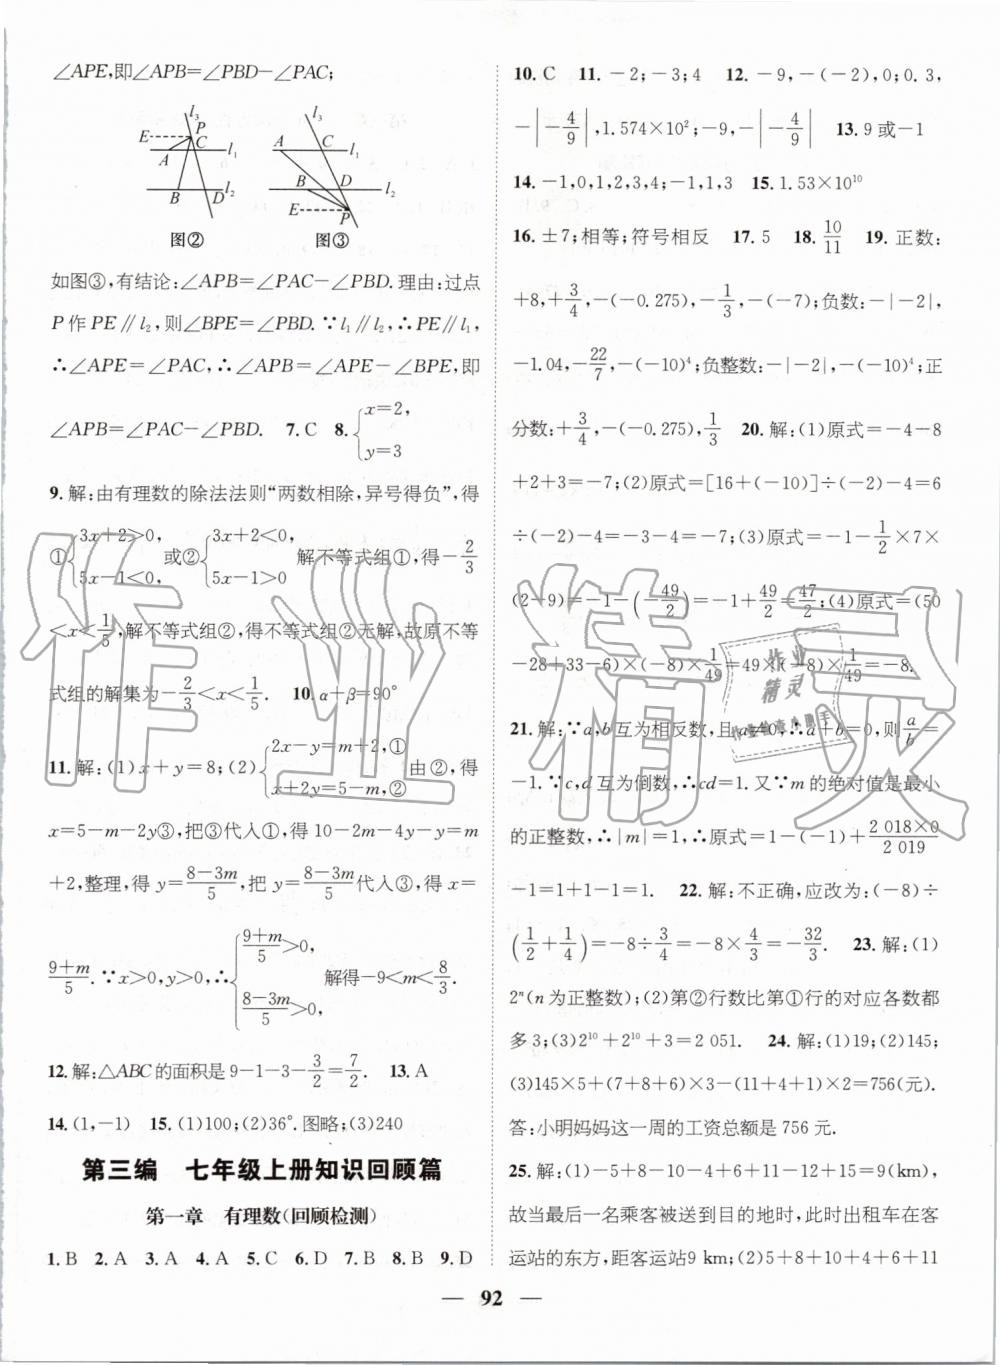 ∠APE,即∠APB=∠PBD-∠PAC;
l₃
E
P
C
A
l₁
B
D
l₂
图②
l₃
A
C
l₁
B
D
l₂
E
P
图③
如图③,有结论:∠APB=∠PAC-∠PBD.理由:过点
P作PE∥l₂,则∠BPE=∠PBD.∵l₁∥l₂,∴PE∥l₁,
∴∠APE=∠PAC,∴∠APB=∠APE-∠BPE,即
∠APB=∠PAC-∠PBD. 7.C 8.{x=2, y=3
9.解:由有理数的除法法则“两数相除,异号得负”,得
①{3x+2>0, 5x-1<0 或②{3x+2<0, 5x-1>0 解不等式组①,得-2/3
<x<1/5,解不等式组②,得不等式组②无解,故原不等
式组的解集为-2/3<x<1/5. 10.α+β=90°
11.解:(1)x+y=8;(2){2x-y=m+2,① x+2y=5-m,② 由②,得
x=5-m-2y③,把③代入①,得10-2m-4y-y=m
+2,整理,得y=(8-3m)/5,把y=(8-3m)/5代入③,得x=
(9+m)/5.∵x>0,y>0,∴{(9+m)/5>0, (8-3m)/5>0, 解得-9<m<8/3.
12.解:△ABC的面积是9-1-3-3/2=7/2. 13.A
14.(1,-1) 15.(1)100;(2)36°.图略;(3)240
第三编 七年级上册知识回顾篇
第一章 有理数(回顾检测)
1.B 2.A 3.A 4.A 5.C 6.D 7.B 8.B 9.D
10.C 11.-2;-3;4 12.-9,-(-2),0;0.3,
-|-4/9|,1.574×10²;-9,-|-4/9| 13.9或-1
14.-1,0,1,2,3,4;-1,1,3 15.1.53×10¹⁰
16.±7;相等;符号相反 17.5 18.10/11 19.正数:
+8,+3/4,-(-0.275),-1/3,-(-7);负数:-|-2|,
-1.04,-22/7,-(-10)⁴;负整数:-|-2|,-(-10)⁴;正
分数:+3/4,-(-0.275),1/3 20.解:(1)原式=-4-8
+2+3=-7;(2)原式=[16+(-10)]÷(-2)-4=6
÷(-2)-4=-3-4=-7;(3)原式=-1-1/2×7×
(2-9)=-1-(-49/2)=-1+49/2=47/2;(4)原式=(50
-28+33-6)×(-8)×1/49=49×(-8)×1/49=-8.
21.解:∵a,b互为相反数,且a≠0,∴a+b=0,则a/b=
-1.∵c,d互为倒数,∴cd=1.又∵m的绝对值是最小
的正整数,∴|m|=1,∴原式=1-(-1)+(2 018×0)/2 019
-1=1+1-1=1. 22.解:不正确,应改为:(-8)÷
(1/2+1/4)=-8÷3/4=-8×4/3=-32/3. 23.解:(1)
2ⁿ(n为正整数);(2)第②行数比第①行的对应各数都
多3;(3)2¹⁰+2¹⁰+3=2 051. 24.解:(1)19;(2)145;
(3)145×5+(7+8+6)×3-(11+4+1)×2=756(元).
答:小明妈妈这一周的工资总额是756元.
25.解:(1)-5+8-10-4+6-11+10+15=9(km),
故当最后一名乘客被送到目的地时,此时出租车在客
运站的东方,距客运站9 km;(2)5+8+10+4+6+11
— 92 —
作业精灵
作业精灵
作业检查小助手